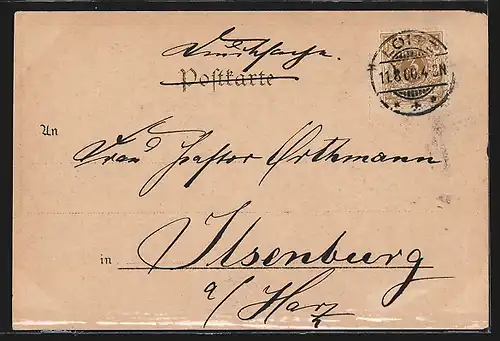 Drucksache.
Postkarte
LOITZ
11.8.00.4-5N
An
Frau Pastor Orthmann
in Ilsenburg
a/ Harz